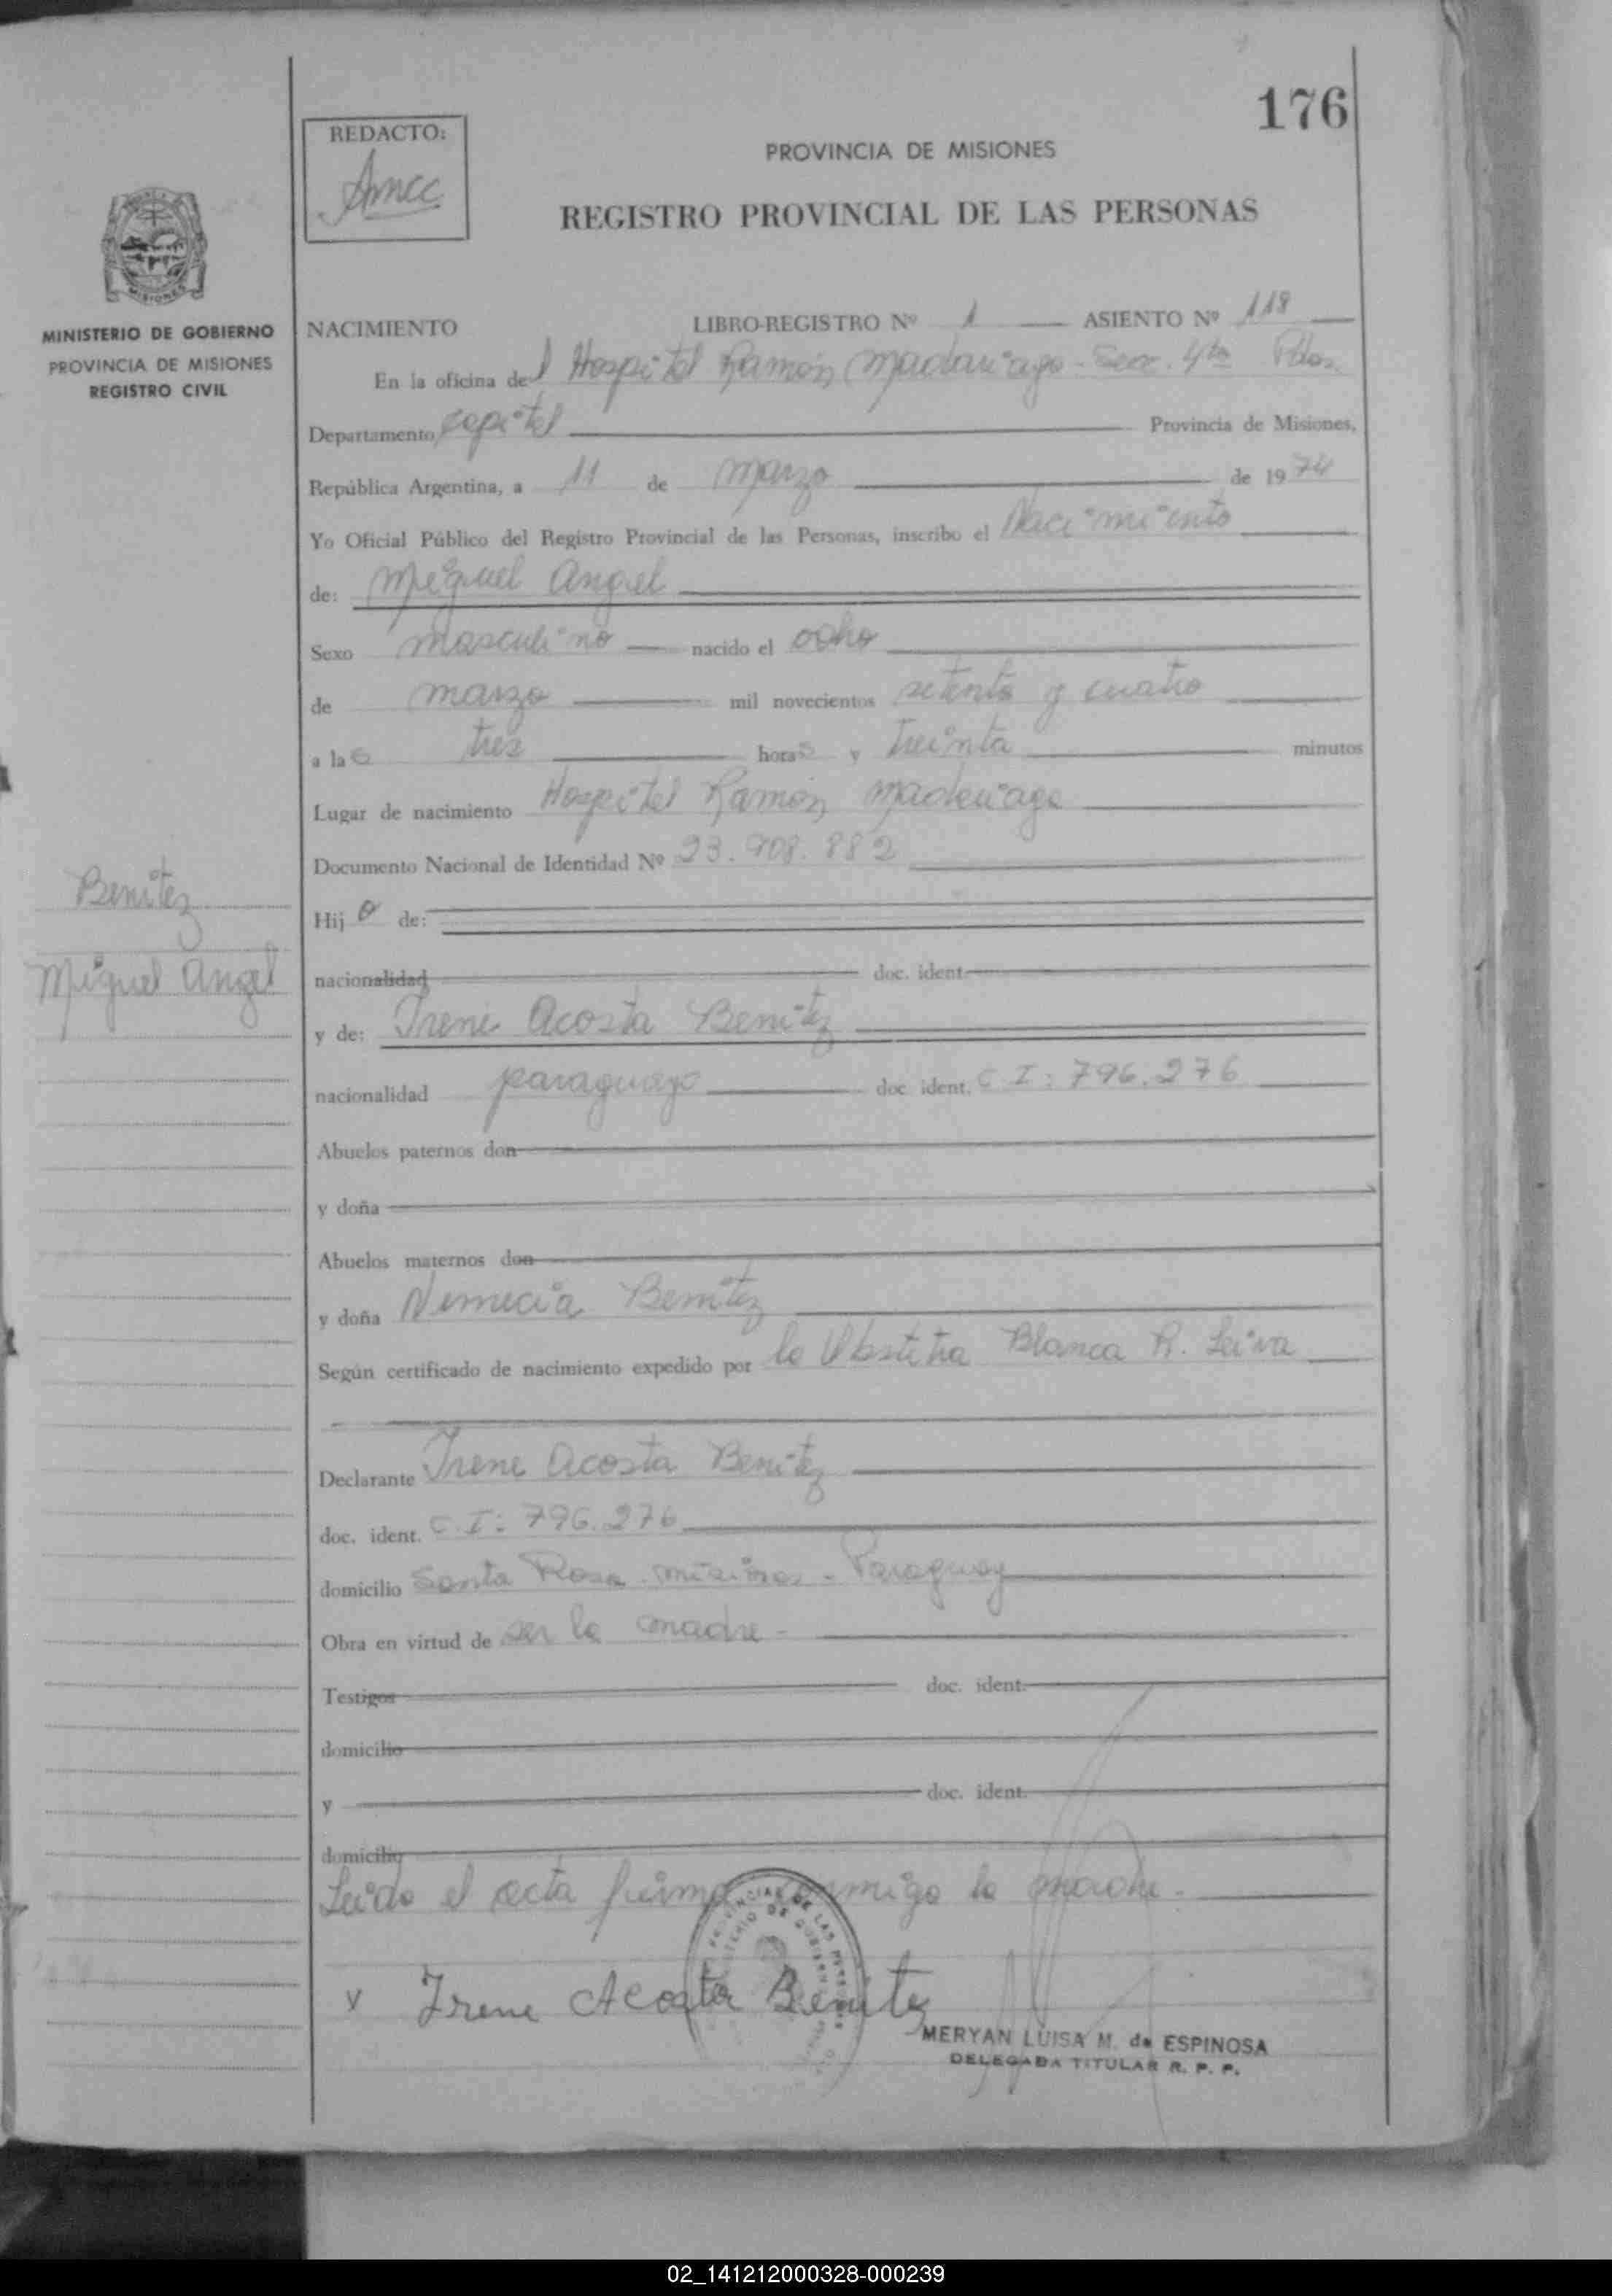 176
REDACTO:
Amcc
PROVINCIA DE MISIONES
REGISTRO PROVINCIAL DE LAS PERSONAS
MISIONES
MINISTERIO DE GOBIERNO
PROVINCIA DE MISIONES
REGISTRO CIVIL
NACIMIENTO LIBRO-REGISTRO Nº 1 ASIENTO Nº 118
En la oficina del Hospital Ramón Madariaga - Secc. 4ta Pdas.
Departamento Capital Provincia de Misiones,
República Argentina, a 11 de marzo de 1974
Yo Oficial Público del Registro Provincial de las Personas, inscribo el Nacimiento
de: Miguel Angel
Sexo masculino nacido el ocho
de marzo mil novecientos setenta y cuatro
a las tres horas y treinta minutos
Lugar de nacimiento Hospital Ramón Madariaga
Documento Nacional de Identidad Nº 23.908.882
Benitez
Miguel Angel
Hijo de:
nacionalidad doc. ident.
y de: Irene Acosta Benitez
nacionalidad paraguaya doc. ident. C.I: 796.276
Abuelos paternos don
y doña
Abuelos maternos don
y doña Nemecia Benitez
Según certificado de nacimiento expedido por la Obstetra Blanca R. Leiva
Declarante Irene Acosta Benitez
doc. ident. C.I: 796.276
domicilio Santa Rosa - Misiones - Paraguay
Obra en virtud de ser la madre -
Testigos doc. ident.
domicilio
y doc. ident.
domicilio
Leida el acta firma conmigo la madre -
x Irene Acosta Benitez
MERYAN LUISA M. de ESPINOSA
DELEGADA TITULAR R. P. P.
02_141212000328-000239